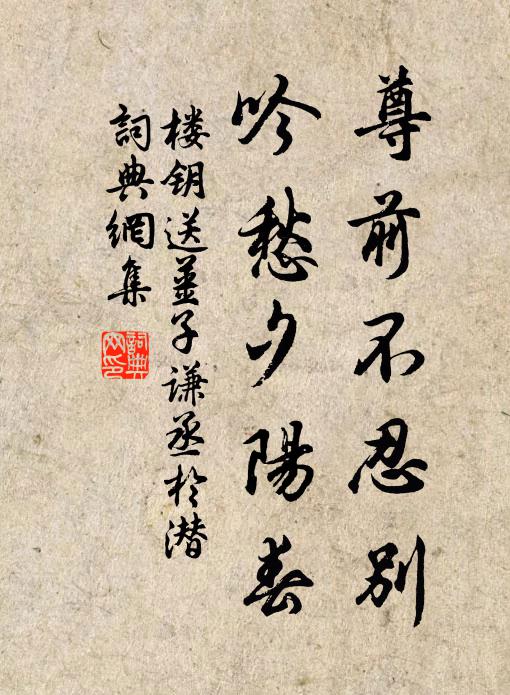 尊前不忍别
吟愁夕陽春
楼钥送薑子谦丞於潜
詞典網集
詞典网印